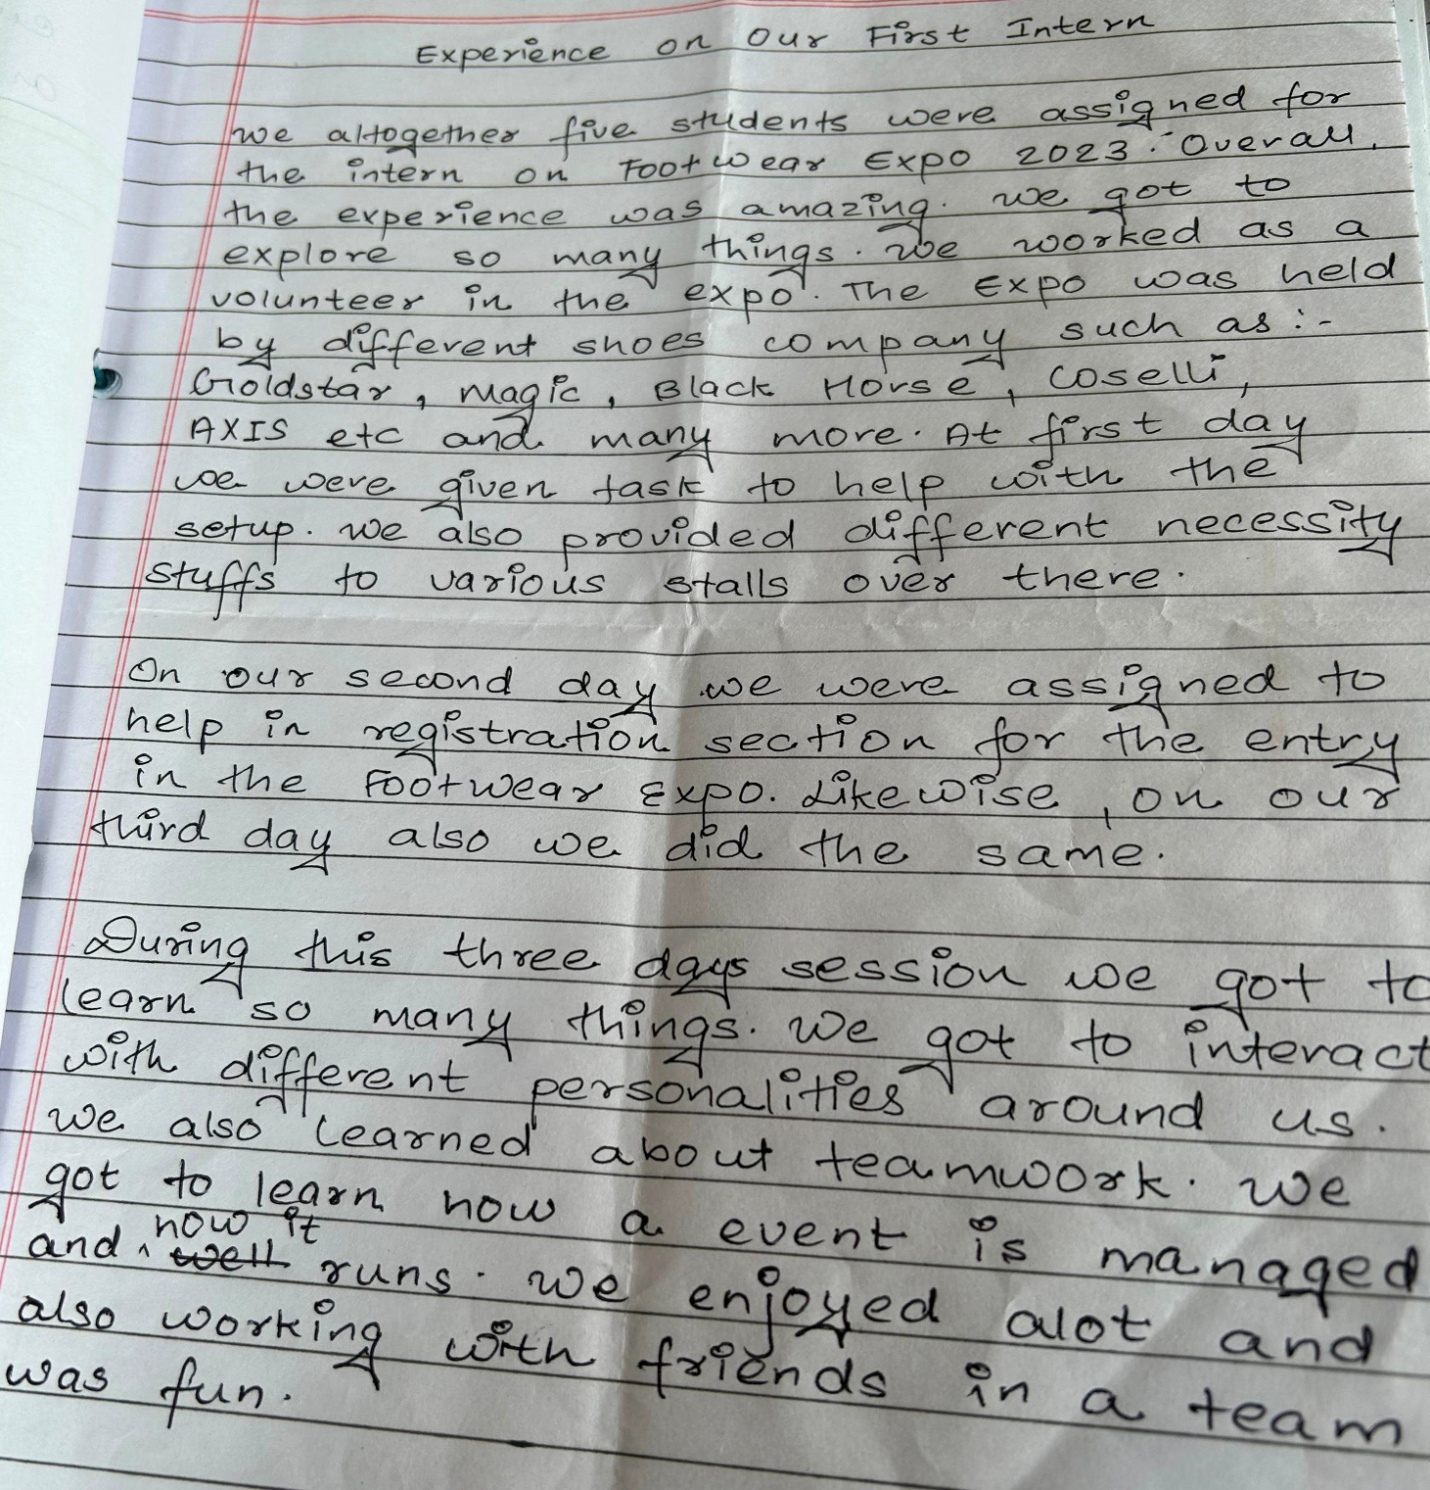 Experience on Our First Intern
We altogether five students were assigned for
the intern on Footwear Expo 2023. Overall,
the experience was amazing. We got to
explore so many things. We worked as a
volunteer in the expo. The Expo was held
by different shoes company such as :-
Goldstar, Magic, Black Horse, Coselli,
AXIS etc and many more. At first day
we were given task to help with the
setup. We also provided different necessity
stuffs to various stalls over there.
On our second day we were assigned to
help in registration section for the entry
in the Footwear Expo. Likewise, on our
third day also we did the same.
During this three days session we got to
learn so many things. We got to interact
with different personalities around us.
We also learned about teamwork. We
got to learn how a event is managed
and how it well runs. We enjoyed alot and
also working with friends in a team
was fun.